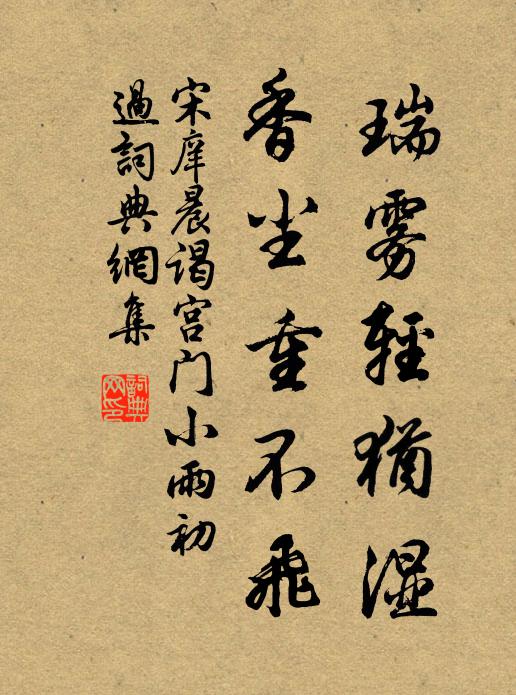 瑞雾輕猶湿
香尘重不飛
宋庠晨谒宫门小雨初
過詞典網集
詞典
网印